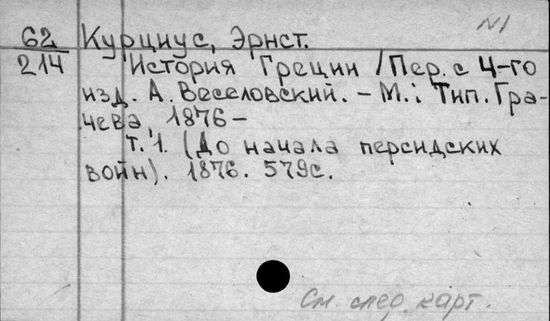 №1
62 Курциус, Эрнст.
214 История Греции / Пер. с 4-го
изд. А. Веселовский. – М.: Тип. Гра-
чева, 1876 –
Т. 1. (До начала персидских
войн). 1876. 579с.
См. след. карт.